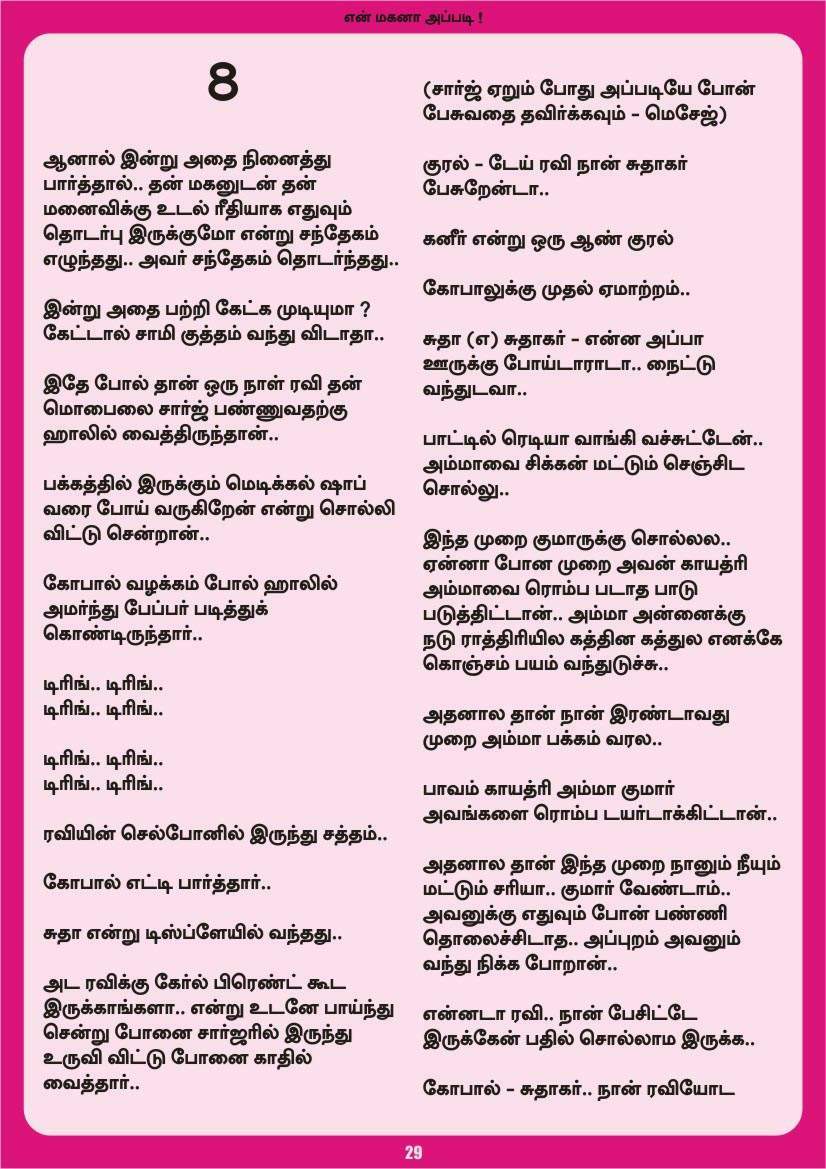 என் மகனா அப்படி !
8
ஆனால் இன்று அதை நினைத்து
பார்த்தால்.. தன் மகனுடன் தன்
மனைவிக்கு உடல் ரீதியாக எதுவும்
தொடர்பு இருக்குமோ என்று சந்தேகம்
எழுந்தது.. அவர் சந்தேகம் தொடர்ந்தது..
இன்று அதை பற்றி கேட்க முடியுமா ?
கேட்டால் சாமி குத்தம் வந்து விடாதா..
இதே போல் தான் ஒரு நாள் ரவி தன்
மொபைலை சார்ஜ் பண்ணுவதற்கு
ஹாலில் வைத்திருந்தான்..
பக்கத்தில் இருக்கும் மெடிக்கல் ஷாப்
வரை போய் வருகிறேன் என்று சொல்லி
விட்டு சென்றான்..
கோபால் வழக்கம் போல் ஹாலில்
அமர்ந்து பேப்பர் படித்துக்
கொண்டிருந்தார்..
டிரிங்.. டிரிங்..
டிரிங்.. டிரிங்..
டிரிங்.. டிரிங்..
டிரிங்.. டிரிங்..
ரவியின் செல்போனில் இருந்து சத்தம்..
கோபால் எட்டி பார்த்தார்..
சுதா என்று டிஸ்ப்ளேயில் வந்தது..
அட ரவிக்கு கேர்ல் பிரெண்ட் கூட
இருக்காங்களா.. என்று உடனே பாய்ந்து
சென்று போனை சார்ஜரில் இருந்து
உருவி விட்டு போனை காதில்
வைத்தார்..
(சார்ஜ் ஏறும் போது அப்படியே போன்
பேசுவதை தவிர்க்கவும் - மெசேஜ்)
குரல் - டேய் ரவி நான் சுதாகர்
பேசுறேன்டா..
கனீர் என்று ஒரு ஆண் குரல்
கோபாலுக்கு முதல் ஏமாற்றம்..
சுதா (எ) சுதாகர் - என்ன அப்பா
ஊருக்கு போய்டாராடா.. நைட்டு
வந்துடவா..
பாட்டில் ரெடியா வாங்கி வச்சுட்டேன்..
அம்மாவை சிக்கன் மட்டும் செஞ்சிட
சொல்லு..
இந்த முறை குமாருக்கு சொல்லல..
ஏன்னா போன முறை அவன் காயத்ரி
அம்மாவை ரொம்ப படாத பாடு
படுத்திட்டான்.. அம்மா அன்னைக்கு
நடு ராத்திரியில கத்தின கத்துல எனக்கே
கொஞ்சம் பயம் வந்துடுச்சு..
அதனால தான் நான் இரண்டாவது
முறை அம்மா பக்கம் வரல..
பாவம் காயத்ரி அம்மா குமார்
அவங்களை ரொம்ப டயர்டாக்கிட்டான்..
அதனால தான் இந்த முறை நானும் நீயும்
மட்டும் சரியா.. குமார் வேண்டாம்..
அவனுக்கு எதுவும் போன் பண்ணி
தொலைச்சிடாத.. அப்புறம் அவனும்
வந்து நிக்க போறான்..
என்னடா ரவி.. நான் பேசிட்டே
இருக்கேன் பதில் சொல்லாம இருக்க..
கோபால் - சுதாகர்.. நான் ரவியோட
29